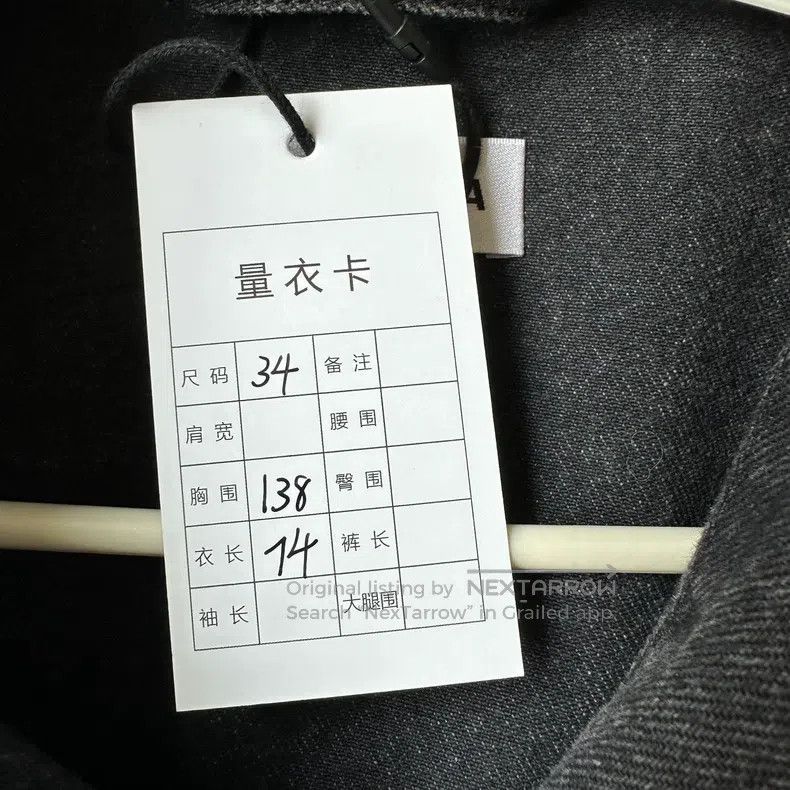 A
量衣卡
尺码 34 备注
肩宽 腰围
胸围 138 臀围
衣长 74 裤长
袖长 大腿围
Original listing by NEXTARROW
Search "NexTarrow" in Grailed app.